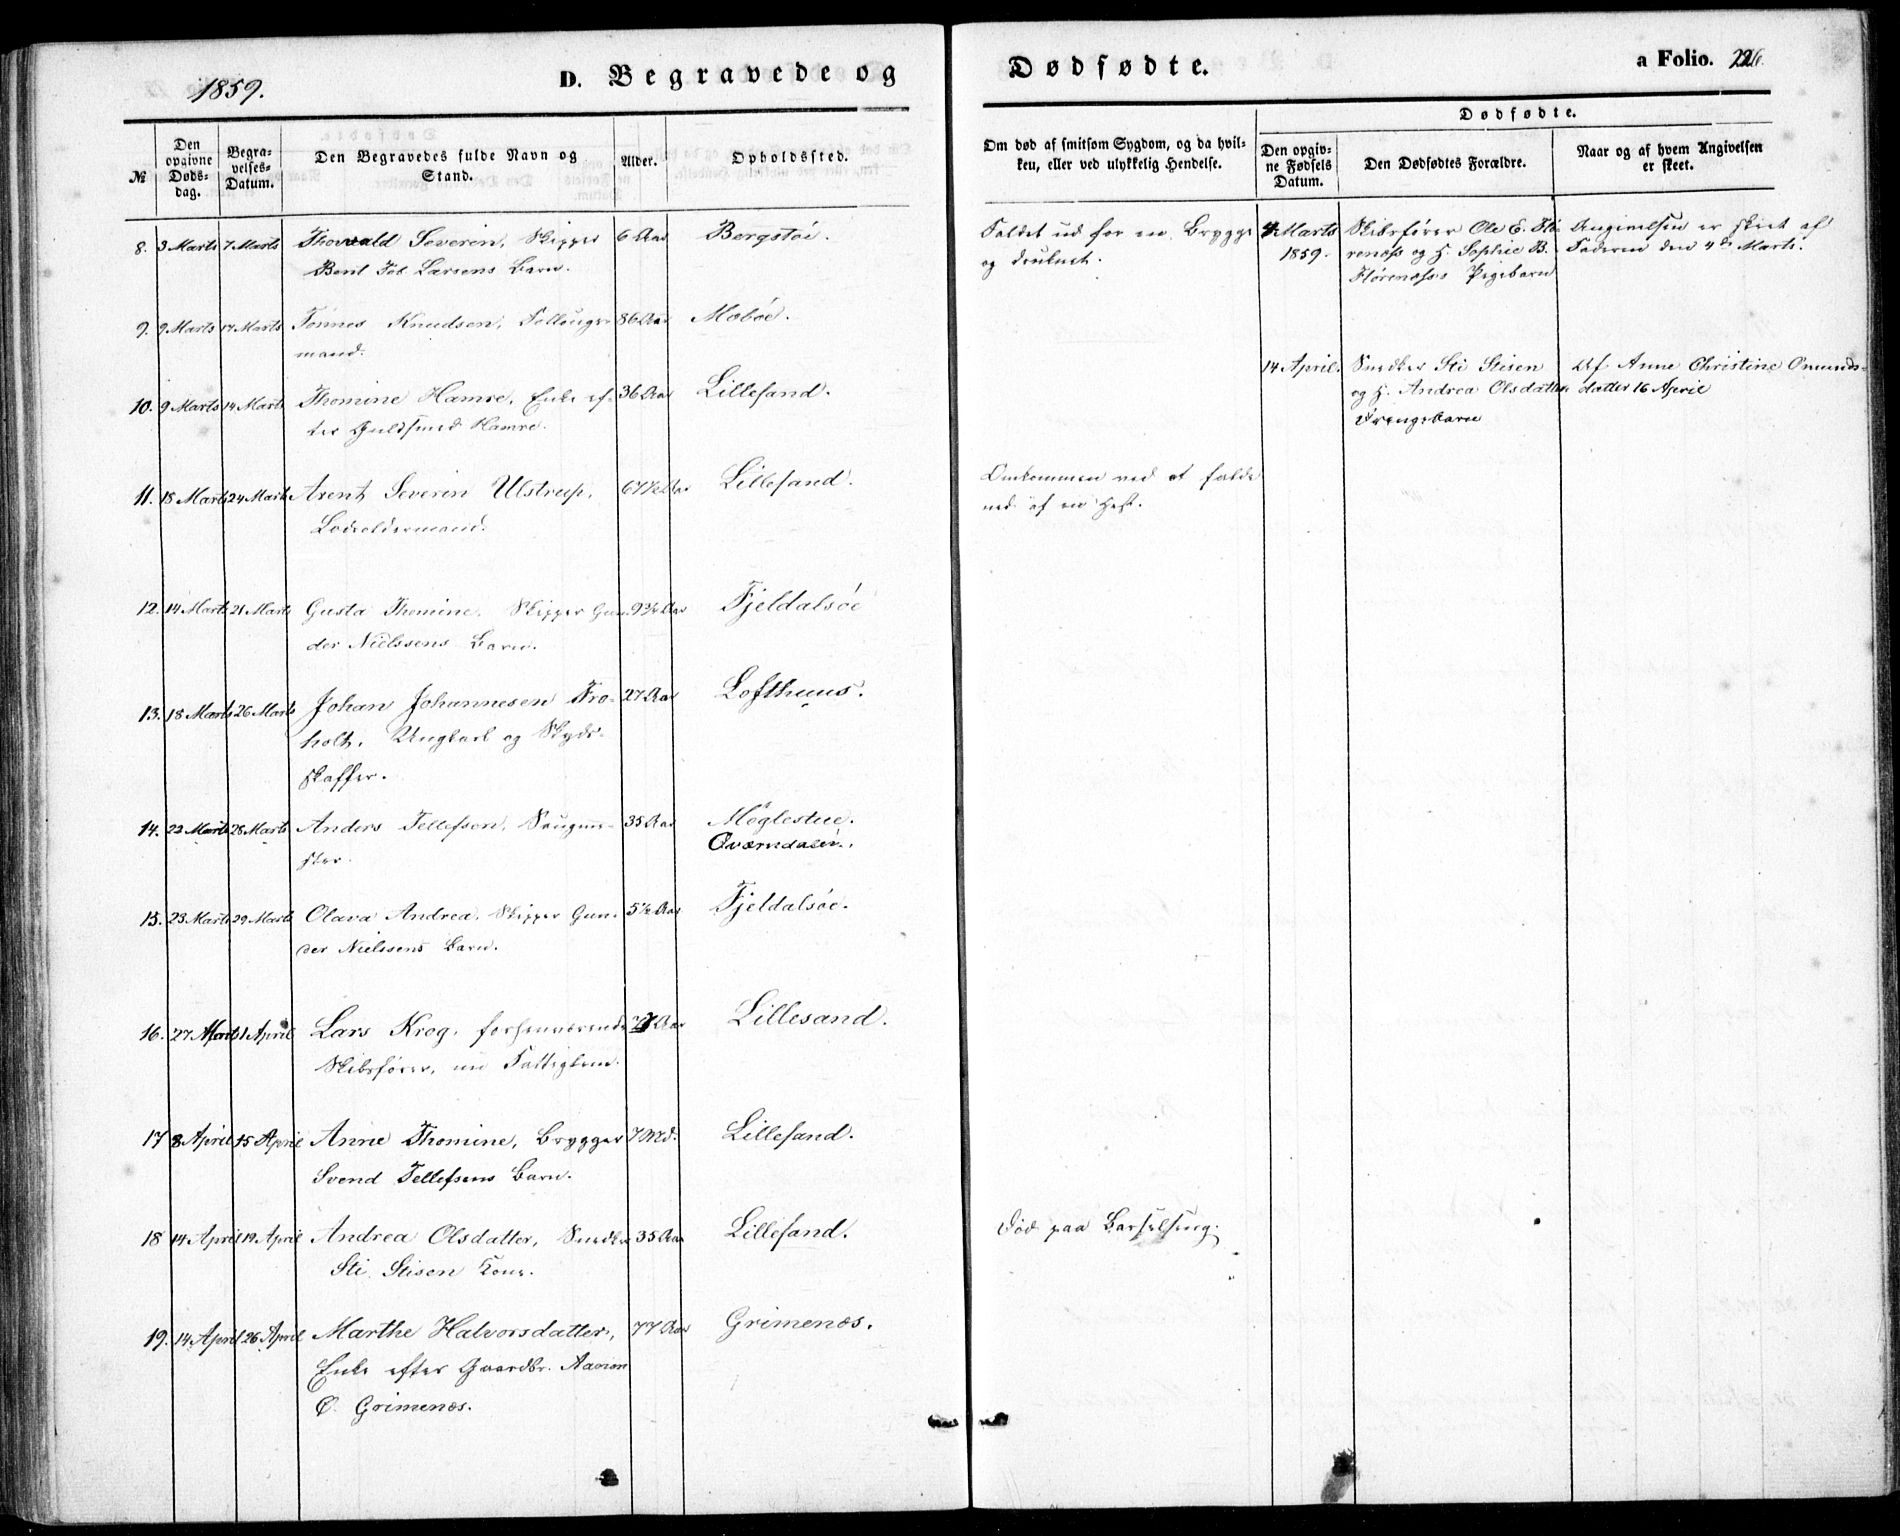 1859.
D. Begravede og
Dødfødte.
a Folio. 226.
№
Den opgivne Døds-dag.
Begra-velses-Datum.
Den Begravedes fulde Navn og Stand.
Alder.
Opholdssted.
Om død af smitsom Sygdom, og da hvil-ken, eller ved ulykkelig Hendelse.
Dødfødte.
Den opgiv-ne Fødsels Datum.
Den Dødfødtes Forældre.
Naar og af hvem Angivelsen er skeet.
8. 3 Marts 7 Marts Thorvald Severin, Skipper 6 Aar Bergstøi.
Bent Larsens Barn.
Faldet ud for en Brygge
og druknet.
4 Marts
1859.
Skibsfører Ole E. Flø-
renæss og H. Sophie B.
Flørenæss's Pigebarn
Angivelsen er skeet af
Faderen den 4de Marts.
9. 9 Marts 17 Marts Tønnes Knudsen, 86 Aar Mæbøe.
mand.
10. 9 Marts 14 Marts Thomine Hamre, Enke ef- 36 Aar Lillesand.
ter Guldsmed Hamre.
14 April. Snedker Sti Stisen
og H. Andrea Olsdatter
Drengebarn
Af Anne Christine Omunds-
datter 16 April
11. 18 Marts 24 Marts Arent Severin Ulstrup, 67½ Aar Lillesand.
Lodsoldermand.
Omkommen ved at falde
ned af en Hest.
12. 14 Marts 21 Marts Gusta Thomine, Skipper Gun- 9¾ Aar Fjeldalsøe
der Nielssens Barn.
13. 18 Marts 26 Marts Johan Johannesen Fro- 27 Aar Lofthuus.
holt, Ungkarl og Skyds-
skaffer.
14. 22 Marts 28 Marts Anders Tellefsen, Saugme- 35 Aar Møglestue.
ster.
Qværndalen.
15. 23 Marts 29 Marts Olava Andrea, Skipper Gun- 5½ Aar Fjeldalsøe.
der Nielssens Barn.
16. 27 Marts 1 April Lars Krog, forhenværende Aar Lillesand.
Skibsfører, nu Fattiglem.
17 8 April 15 April Anne Thomine, Brygger 7 Md. Lillesand.
Svend Tellefsens Barn.
18 14 April 19 April Andrea Olsdatter, Snedker 35 Aar Lillesand.
Sti Stisen Kone.
Død paa Barselseng.
19. 14 April 26 April Marthe Halvorsdatter, 77 Aar Grimenæs.
Enke efter Gaardbr. Aanon
Ø. Grimenæs.